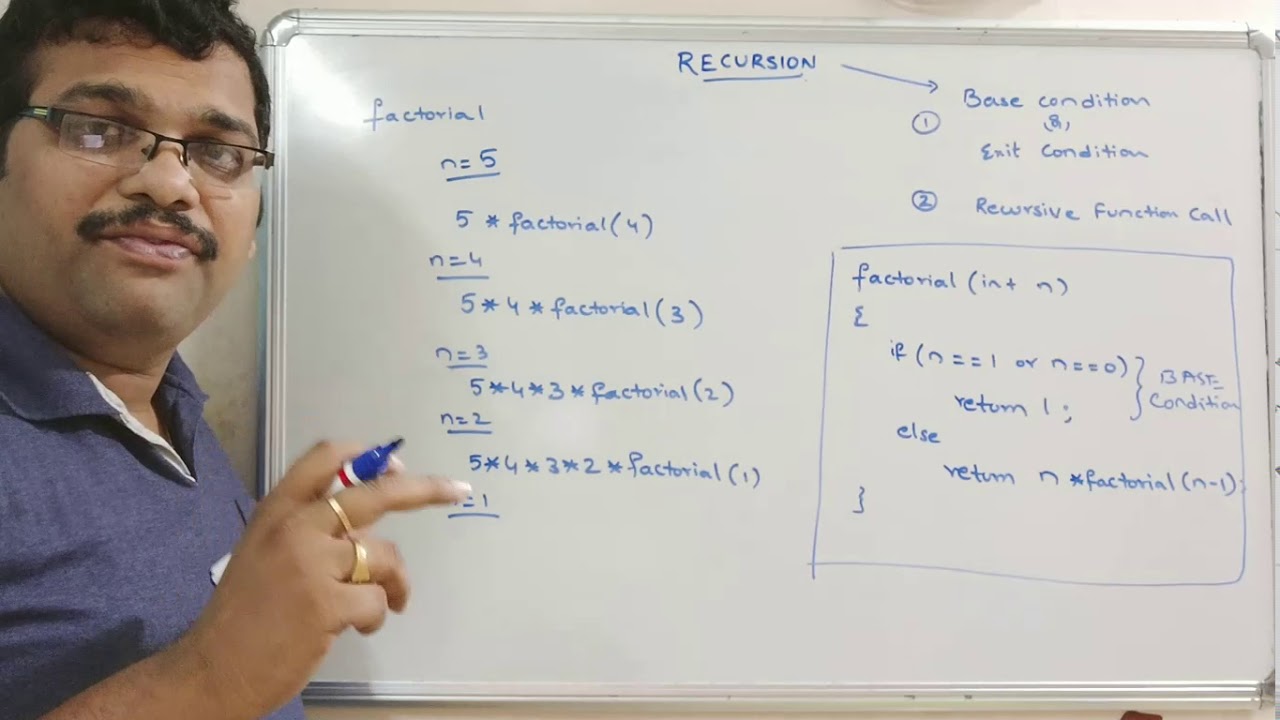 RECURSION
factorial
n=5
5 * factorial(4)
n=4
5*4*factorial(3)
n=3
5*4*3*factorial(2)
n=2
5*4*3*2*factorial(1)
=1
Base condition
①
Exit Condition
② Recursive Function Call
factorial (int n)
{
if (n==1 or n==0)
return 1;
else
return n *factorial(n-1);
}
BASE
Condition